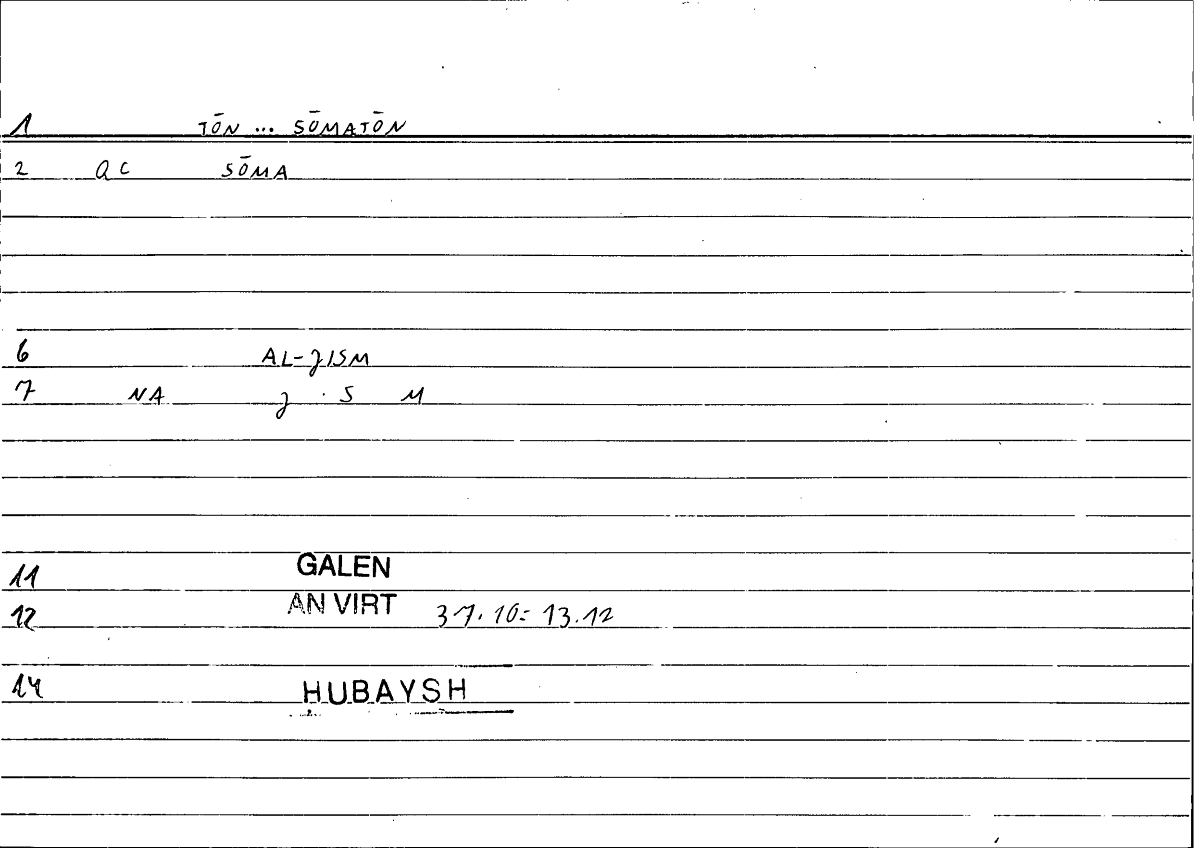 1 TŌN ... SŌMATŌN
2 QC SŌMA
6 AL-JISM
7 NA J S M
11 GALEN
12 AN VIRT 37.10 = 13.12
14 ḤUBAYSH